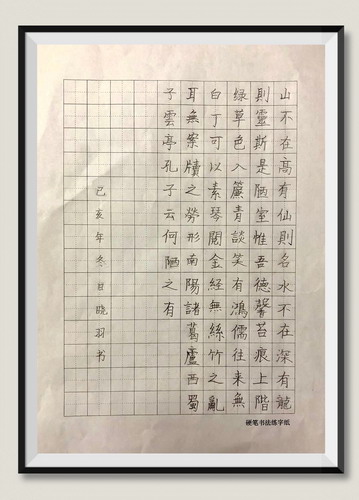 山不在高有仙則名水不在深有龍
則靈斯是陋室惟吾德馨苔痕上階
绿草色入簾青談笑有鴻儒往来無
白丁可以素琴閱金經無絲竹之亂
耳無案牘之勞形南陽諸葛廬西蜀
子雲亭孔子云何陋之有
己亥年冬日晓羽书
硬笔书法练字纸